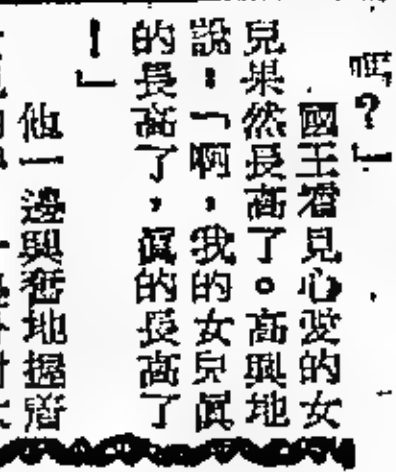 嗎？」
國王看見心愛的女
兒果然長高了。高興地
說：「啊，我的女兒眞
的長高了，眞的長高了
！」
他一邊興奮地握着